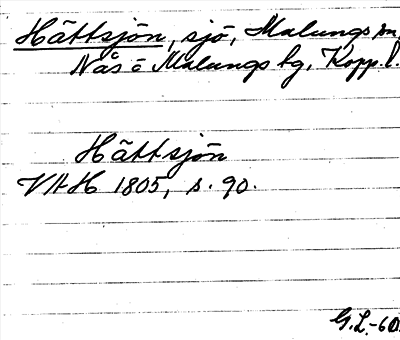 Hättsjön, sjö, Malungs sn,
Nås o Malungs hg, Kopp. l.
Hättsjön
VHH 1805, s. 90.
G.L.-60